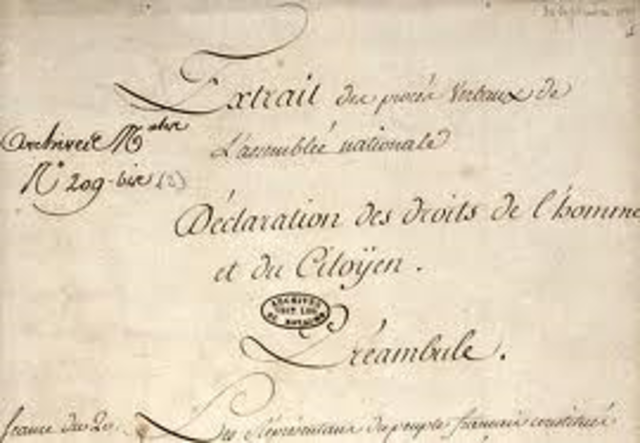 Extrait des procès Verbaux de
L'assemblée nationale
N° 209-bis (2)
Déclaration des droits de l'homme
et du Citoÿen.
ARCHIVES
DU ROYAUME
Préambule.
Les Représentans du peuple français constitués